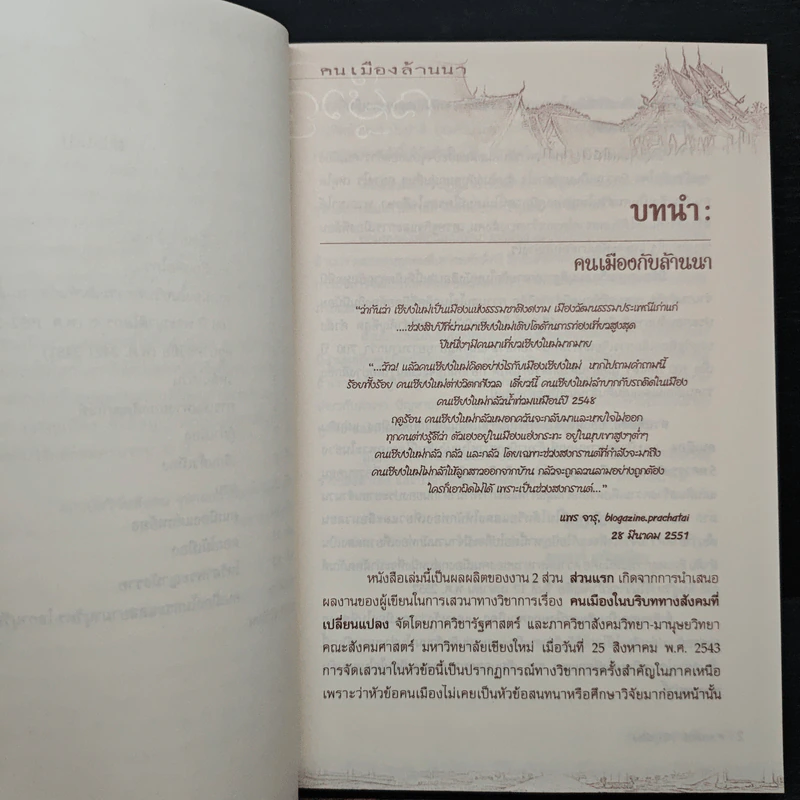 คนเมืองล้านนา
บทนำ :
คนเมืองกับล้านนา
"ว่ากันว่า เชียงใหม่เป็นเมืองแห่งธรรมชาติงดงาม เมืองวัฒนธรรมประเพณีเก่าแก่
....ช่วงสิบปีที่ผ่านมาเชียงใหม่เติบโตด้านการท่องเที่ยวสูงสุด
ปีหนึ่งๆมีคนมาเที่ยวเชียงใหม่มากมาย
"...ว้าว! แล้วคนเชียงใหม่คิดอย่างไรกับเมืองเชียงใหม่ หากไปถามคำถามนี้
ร้อยทั้งร้อย คนเชียงใหม่ต่างวิตกกังวล เดี๋ยวนี้ คนเชียงใหม่ลำบากกับรถติดในเมือง
คนเชียงใหม่กลัวน้ำท่วมเหมือนปี 2548
ฤดูร้อน คนเชียงใหม่กลัวหมอกควันจะกลับมาและหายใจไม่ออก
ทุกคนต่างรู้ดีว่า ตัวเองอยู่ในเมืองแอ่งกระทะ อยู่ในหุบเขาสูงๆต่ำๆ
คนเชียงใหม่กลัว กลัว และกลัว โดยเฉพาะช่วงสงกรานต์ที่กำลังจะมาถึง
คนเชียงใหม่ไม่กล้าให้ลูกสาวออกจากบ้าน กลัวจะถูกลวนลามอย่างถูกต้อง
ใครก็เอาผิดไม่ได้ เพราะเป็นช่วงสงกรานต์..."
แพร จารุ, blogazine.prachatai
28 มีนาคม 2551
หนังสือเล่มนี้เป็นผลผลิตของงาน 2 ส่วน ส่วนแรก เกิดจากการนำเสนอ
ผลงานของผู้เขียนในการเสวนาทางวิชาการเรื่อง คนเมืองในบริบททางสังคมที่
เปลี่ยนแปลง จัดโดยภาควิชารัฐศาสตร์ และภาควิชาสังคมวิทยา-มานุษยวิทยา
คณะสังคมศาสตร์ มหาวิทยาลัยเชียงใหม่ เมื่อวันที่ 25 สิงหาคม พ.ศ. 2543
การจัดเสวนาในหัวข้อนี้เป็นปรากฏการณ์ทางวิชาการครั้งสำคัญในภาคเหนือ
เพราะว่าหัวข้อคนเมืองไม่เคยเป็นหัวข้อสนทนาหรือศึกษาวิจัยมาก่อนหน้านั้น